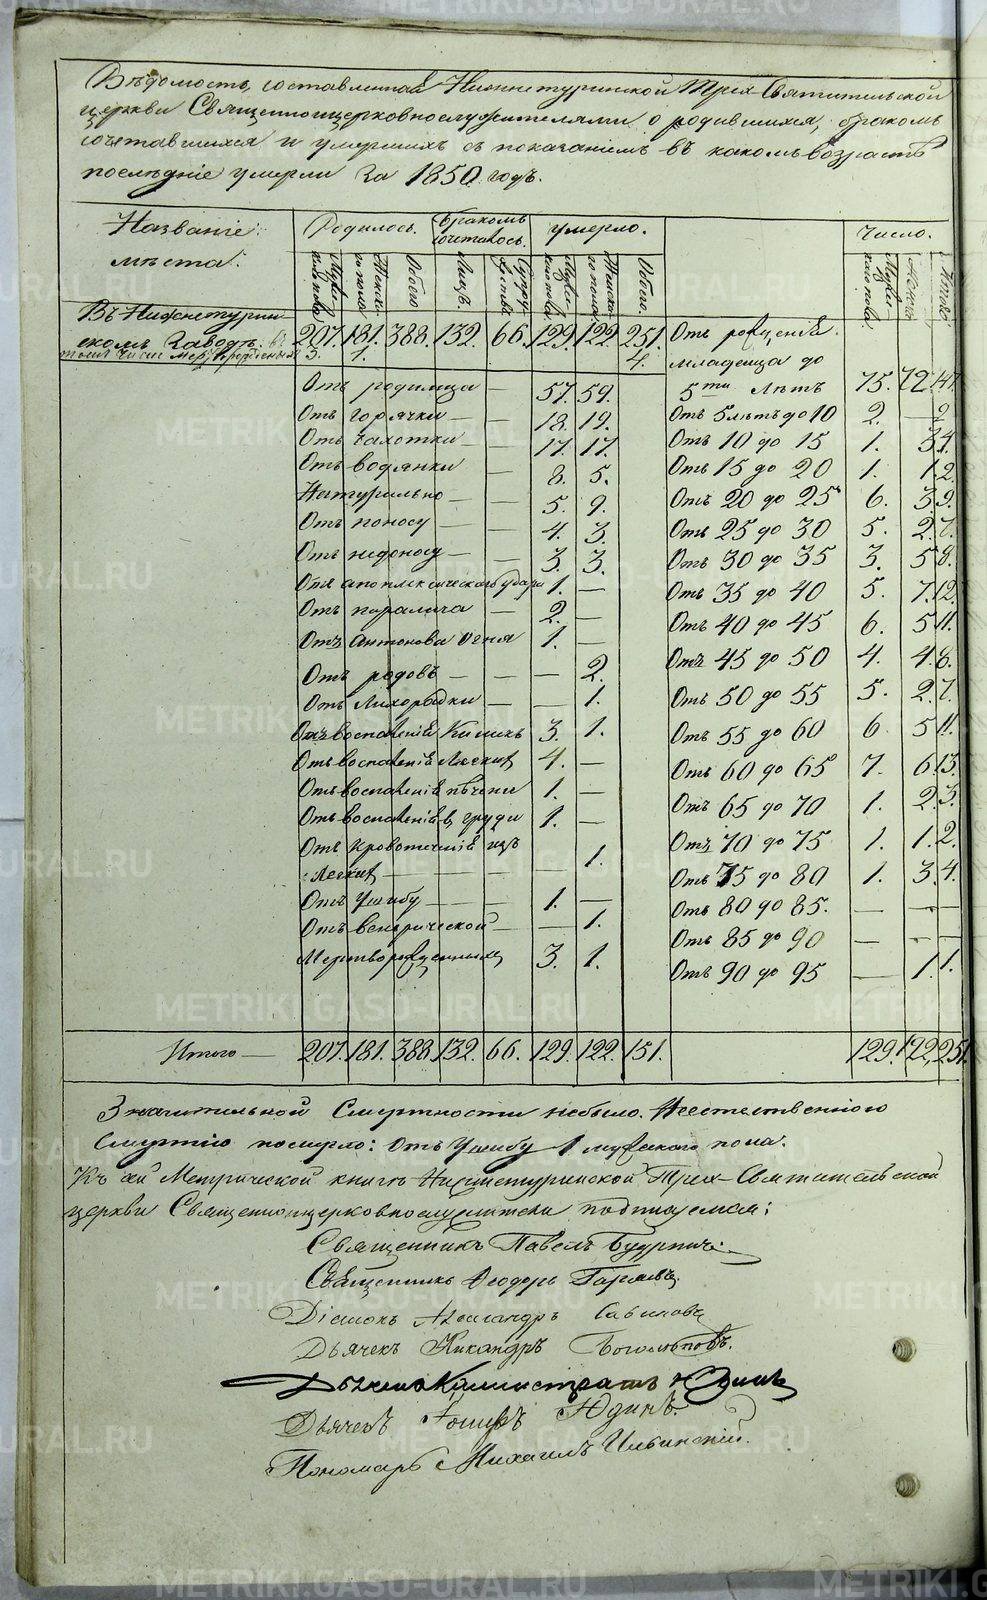 Вѣдомость, составленная Нижнетуринской Трех-Святительской
церкви Священноцерковнослужителями о родившихся, бракомъ
сочетавшихся и умершихъ съ показаніемъ въ какомъ возрастѣ
послѣдніе умерли за 1850 годъ.
Названіе мѣста.
Родилось.
Бракомъ сочеталось.
умерло.
Число.
Обоего
Лицъ.
Обоего.
Въ Нижнетурин-
скомъ Заводѣ. въ 207. 181. 388. 132. 66. 129. 122. 251.
томъ числѣ мертворожденныхъ 3. 1. 4.
Отъ родимца — 57. 59.
Отъ горячки — — 18. 19.
Отъ чахотки — — 17. 17.
Отъ водянки — 8. 5.
Натурально — — 5. 9.
Отъ поносу — — 4. 3.
Отъ недоносу — — 3. 3.
Отъ апоплексическаго удара 1. —
Отъ паралича — 2. —
Отъ Антонова огня 1. —
Отъ родовъ — — — 2.
Отъ Лихорадки — — 1.
Отъ воспаленіѣ Кишекъ 3. 1.
Отъ воспаленіѣ Легкихъ 4. —
Отъ воспаленіѣ печени 1. —
Отъ воспаленіѣ въ груди 1. —
Отъ Кровотеченіѣ изъ
Легкихъ — — — — 1.
Отъ Ушибу — — — 1. —
Отъ венерической — — 1.
Мертворожденныхъ 3. 1.
Отъ рожденіѣ
младенца до
5ти Лѣтъ 75. 72. 147.
Отъ 5 лѣтъ до 10 2. — 2
Отъ 10 до 15 1. 3 4.
Отъ 15 до 20 1. 1. 2.
Отъ 20 до 25 6. 3 9.
Отъ 25 до 30 5. 2. 7.
Отъ 30 до 35 3. 5 8.
Отъ 35 до 40 5. 7. 12.
Отъ 40 до 45 6. 5 11.
Отъ 45 до 50 4. 4 8.
Отъ 50 до 55 5. 2. 7.
Отъ 55 до 60 6 5 11.
Отъ 60 до 65 7. 6. 13.
Отъ 65 до 70 1. 2. 3.
Отъ 70 до 75 1. 1. 2.
Отъ 75 до 80 1. 3. 4.
Отъ 80 до 85. — — —
Отъ 85 до 90 — — —
Отъ 90 до 95 — 1. 1.
Итого — 207. 181. 388. 132. 66. 129. 122. 151. 129. 122. 251.
Значительной Смертности небыло. Неестественною
Смертію померло: отъ Ушибу 1 мужескаго пола.
Къ сей Метрической книгѣ Нижнетуринской Трех-Святительской
церкви Священноцерковнослужители подписуемся:
Священникъ Павелъ
Священникъ Ѳеодоръ
Діаконъ Александръ
Дьячекъ Никандръ Боголѣповъ.
Дьячекъ Юдинъ.
Пономарь Михаилъ Ильинскій.
METRIKI.GASO-URAL.RU